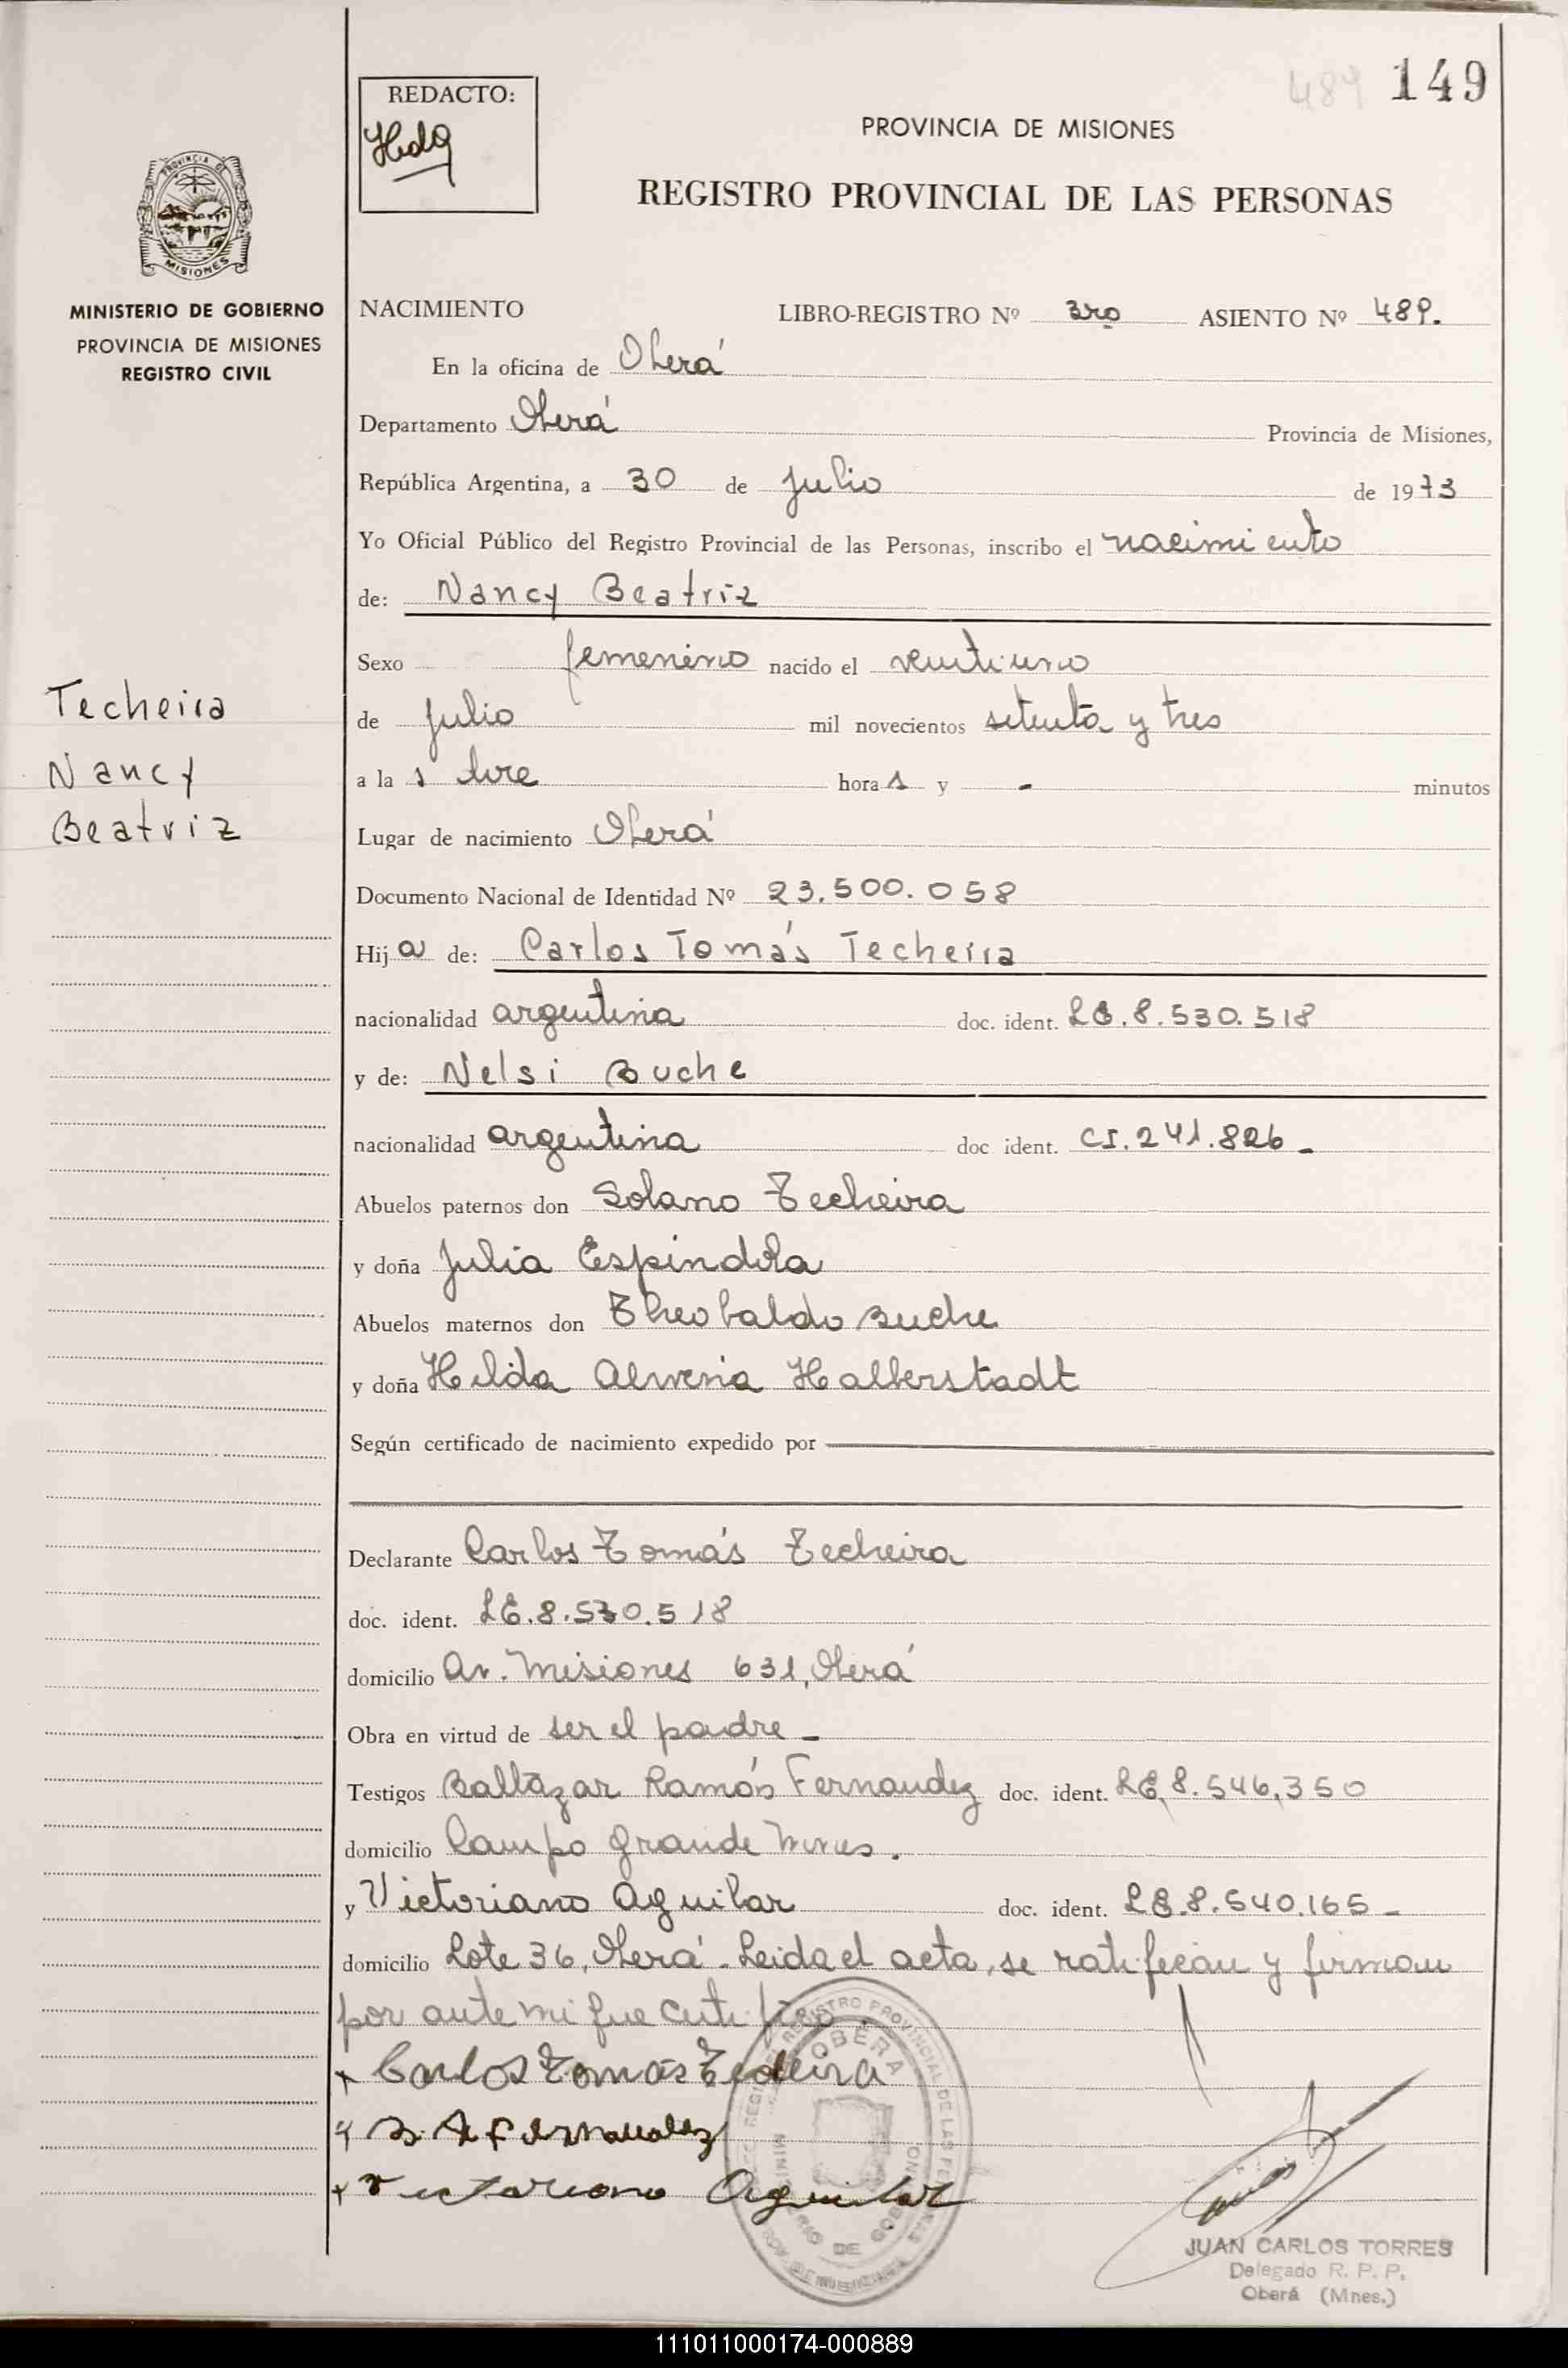 489 149
REDACTO:
PROVINCIA DE MISIONES
REGISTRO PROVINCIAL DE LAS PERSONAS
PROVINCIA DE
MISIONES
MINISTERIO DE GOBIERNO
PROVINCIA DE MISIONES
REGISTRO CIVIL
NACIMIENTO LIBRO-REGISTRO Nº 3ro ASIENTO Nº 489.
En la oficina de Oberá
Departamento Oberá Provincia de Misiones,
República Argentina, a 30 de julio de 1973
Yo Oficial Público del Registro Provincial de las Personas, inscribo el nacimiento
de: Nancy Beatriz
Sexo femenino nacido el veintiuno
Techeira
Nancy
Beatriz
de julio mil novecientos setenta y tres
a la s tre hora s y - minutos
Lugar de nacimiento Oberá
Documento Nacional de Identidad Nº 23.500.058
Hij a de: Carlos Tomás Techeira
nacionalidad argentina doc. ident. LE.8.530.518
y de: Nelsi Buche
nacionalidad argentina doc ident. CI.241.826-
Abuelos paternos don Solano Techeira
y doña Julia Espindola
Abuelos maternos don Theobaldo Buche
y doña Hilda Halberstadt
Según certificado de nacimiento expedido por
Declarante Carlos Tomás Techeira
doc. ident. LE.8.530.518
domicilio Av. Misiones 631, Oberá
Obra en virtud de ser el padre -
Testigos Baltazar Ramós Fernandez doc. ident. LE.8.546,350
domicilio Campo Grande Mnes.
y Victoriano Aguilar doc. ident. LE.8.540.165-
domicilio Lote 36, Oberá. Leida el acta, se ratifican y firman
por ante mi que certifico
x Carlos Tomás Techeira
Fernandez
x Victoriano Aguilar
OBERA
JUAN CARLOS TORRES
Delegado R. P. P.
Oberá (Mnes.)
111011000174-000889